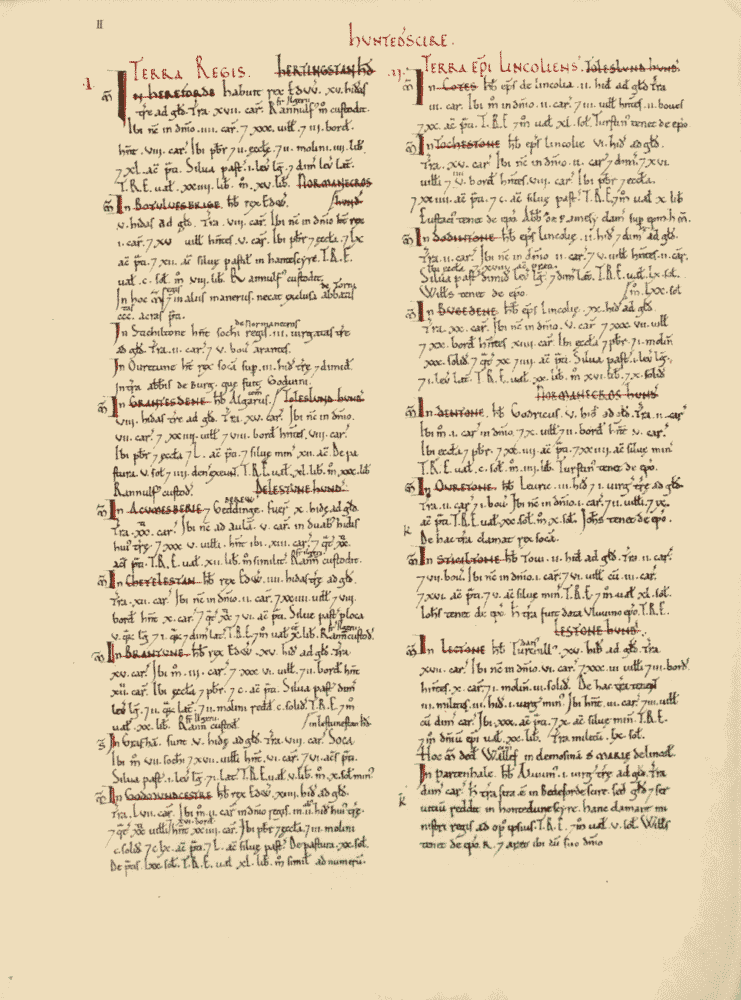 II
HUNTEDSCIRE.
.I. TERRA REGIS. HERTINGSTAN HD
IN HEREFORDE habuit rex Edw. xv. hidas
tre ad gld. Tra. xvii. car. Rannulf' fr Ilgerii m custodit.
Ibi nc in dnio .iiii. car. 7 xxx. uitt. 7 iii. bord.
hnt .viii. car. Ibi pbr 7 ii. eccle. 7 ii. molini .iiii. lib.
7 xl. ac pti. Silua past. i. leu lg. 7 dim leu lat.
T.R.E. ual. xxiiii. lib. m. xv. lib. NORMANECROS
In BOTULUESBRIGE. hb rex Edw. HUND'
v. hidas ad gld. Tra. viii. car. Ibi nc in dnio ht rex
i. car. 7 xv uitt hntes. v. car. Ibi pbr 7 eccla. 7 lx
ac pti. 7 xii. ac silue pastil in hantescyre. T.R.E.
ual. c. sol. m viii. lib. Rannulf' custodit.
In hoc m regis 7 in aliis maneriis. necat exclusa abbatis de Torni
ccc. acras pti.
In Stichiltone hnt sochi regis de Normanecros .iii. uirgatas tre
ad gld. Tra. ii. car. 7 v. bou arantes.
In Ouretune ht rex soca sup .iii. hid tre 7 dimid.
in tra abbis de Burg. que fuit Goduini.
In GRANTESDENE. hb Algarus. TOLESLUND HUND'
viii. hidas tre ad gld. Tra. xv. car. Ibi nc in dnio.
vii. car. 7 xxiiii. uitt 7 viii. bord hntes. viii. car.
Ibi pbr 7 eccla 7 l. ac pti. 7 silue min xii. ac. De pa
stura. v. sol 7 iiii. den exeunt. T.R.E. ual. xl. lib. m. xxx. lib
Rannulf' custod. DELESTUNE HUND'.
In ACUMESBERIE 7 Geddinge. fuer x. hide ad gld.
Tra. xx. car. Ibi nc ad aula. v. car. in duab' hidis
hui' tre. 7 xxx. v. uitti. hnt ibi .xiii. car. 7 qt xx
ac pti. T.R.E. ual. xii. lib. m similit. Rann fr Ilgerii custodit.
In CHETELESTAN. hb rex Edw. iiii. hidas tre ad gld.
Tra. xii. car. Ibi nc in dnio. ii. car. 7 xxiiii. uitt 7 viii.
bord hnt x. car. 7 qt xx 7 vi. ac pti. Silue past p loca
v. qr lg. 7 i. qr 7 dim lat. T.R.E. 7 m ual x. lib. Rann fr Ilgerii custod.
In BRANTUNE. hb rex Edw. xv. hid ad gld. Tra
xv. car. Ibi m .iii. car. 7 xxx vi. uitt. 7 ii. bord hnt
xiii. car. Ibi eccla 7 pbr. 7 c. ac pti. Silua past dim
leu lg. 7 ii. qr lat. 7 ii. molini redd c. solid. T.R.E. 7 m
ual. xx. lib. Rann fr Ilgerii custodit. in lestunestan hd
In Grafha. sunt v. hide ad gld. Tra. viii. car. SOCA
Ibi m vii. sochi 7 xvii. uitti hnt. vi. car. 7 vi. acs pti.
Silua past. i. leu lg. 7 i. lat. T.R.E. ual. v. lib. m. x. sol min'
In GODMUNDCESTRE hb rex Edw. xiiii. hid ad gld.
Tra. lvii. car. Ibi m. ii. car in dnio regis. in. ii. hid hui' tre.
7 qt xx uitti 7 xvi. bord. hnt xxiiii. car. Ibi pbr 7 eccla. 7 iii. molini
c. solid 7 clx. ac pti. 7 l. ac silue past. De pastura. xx. sol.
De ptis lxx. sol. T.R.E. ual xl. lib. m simil ad numeru.
.II. TERRA EPI LINCOLIENS. TOLESLUND HUND'
In COTES hb eps de lincolia .ii. hid ad gld. Tra
iii. car. Ibi m in dnio. ii. car. 7 iii. uitt hntes. ii. boues
7 xx. ac pti. T.R.E. 7 m ual xl. sol. Turstin' tenet de epo
In TOCHESTONE hb eps lincolie vi. hid ad gld.
Tra. xv. car. Ibi nc in dnio. ii. car 7 dim. 7 xvi
uitti 7 iiii. bord. hntes. viii. car. Ibi pbr 7 eccla.
7 xxiiii. ac pti. 7 c. ac silue past. T.R.E. 7 m ual x. lib
Eustaci' tenet de epo. Abb' de Ramesy clam sup epm h m.
In DODINTONE hb eps lincolie. ii. hid 7 dim ad gld.
Tra. ii. car. Ibi nc in dnio. ii. car. 7 v. uitt hntes. ii. car.
Ibi eccla 7 xviii. ac pti. Silua past dimid leu lg. 7 dim lat. T.R.E. ual. lx. sol.
Witts tenet de epo. m. lxx. sol
In BUGEDENE hb eps lincolie. xx. hid ad gld.
Tra. xx. car. Ibi nc in dnio. v. car 7 xxx vii. uitt
7 xx. bord hntes xiiii. car. Ibi eccla 7 pbr. 7 i. molin
xxx. solid. 7 qt xx 7 iiii. ac pti. Silua past. i. leu lg.
7 i. leu lat. T.R.E. ual xx. lib. m xvi. lib. 7 x. solid
NORMANECROS HUND'
In DENTONE. hb Godricus. v. hid ad gld. Tra. ii. car
Ibi m. i. car in dnio. 7 x. uitt. 7 ii. bord hnt v. car.
Ibi eccla 7 pbr. 7 xx iiii. ac pti. 7 xxiiii. ac silue min
T.R.E. ual. c. sol. m. iiii. lib. Turstin' tenet de epo.
In OURETONE. hb Leuric. iii. hid 7 i. uirg tre ad gld.
Tra. ii. car 7 i. bou. Ibi nc in dnio. i. car. 7 ii. uitti. 7 ix.
ac pti. T.R.E. ual. xx. sol. m. x. sol. Johs tenet de epo.
K De hac tra clamat rex soca.
In STICILTONE hb Toui. ii. hid ad gld. Tra. ii. car.
7 vii. bou. Ibi nc in dnio. i. car. 7 vi. uitt cu .iii. car.
7 xvi. ac pti. 7 v. ac silue min. T.R.E. 7 m ual. xl. sol.
Iohs tenet de epo. H tra fuit data Vluuino epo. T.R.E.
LESTONE HUND'.
In LECTONE hb Turchill' dan'. xv. hid ad gld. Tra
xvii. car. Ibi m in dnio. vi. car. 7 xxx. iii uitt 7 iii. bord
hntes. x. car. 7 i. molin. iii. solid. De hac tra tenent
iii. milites. iii. hid. i. uirg min'. Ibi hnt. iii. car. 7 iii. uitt
cu dim car. Ibi. xxx. ac pti. 7 x. ac silue min. T.R.E.
7 m dnium epi ual xx. lib. Tra militu. lx. sol.
Hoc m ded Wallef in elemosina S MARIE de lincol.
In Partenhale. hb Aluuin. i. uirg tre ad gld. Tra
dim car. H tra sita e in Bedefordescire. sed gld 7 ser
K uitiu reddit in hontedunescyre. Hanc clamant mi
nistri regis ad op' ipsius. T.R.E. 7 m ual. v. sol. Witts
tenet de epo R. 7 arat ibi cu suo dnio